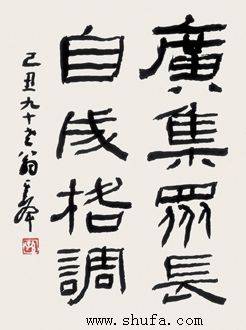 廣集眾長
自成格調
己丑九十老翁
www.shufa.com